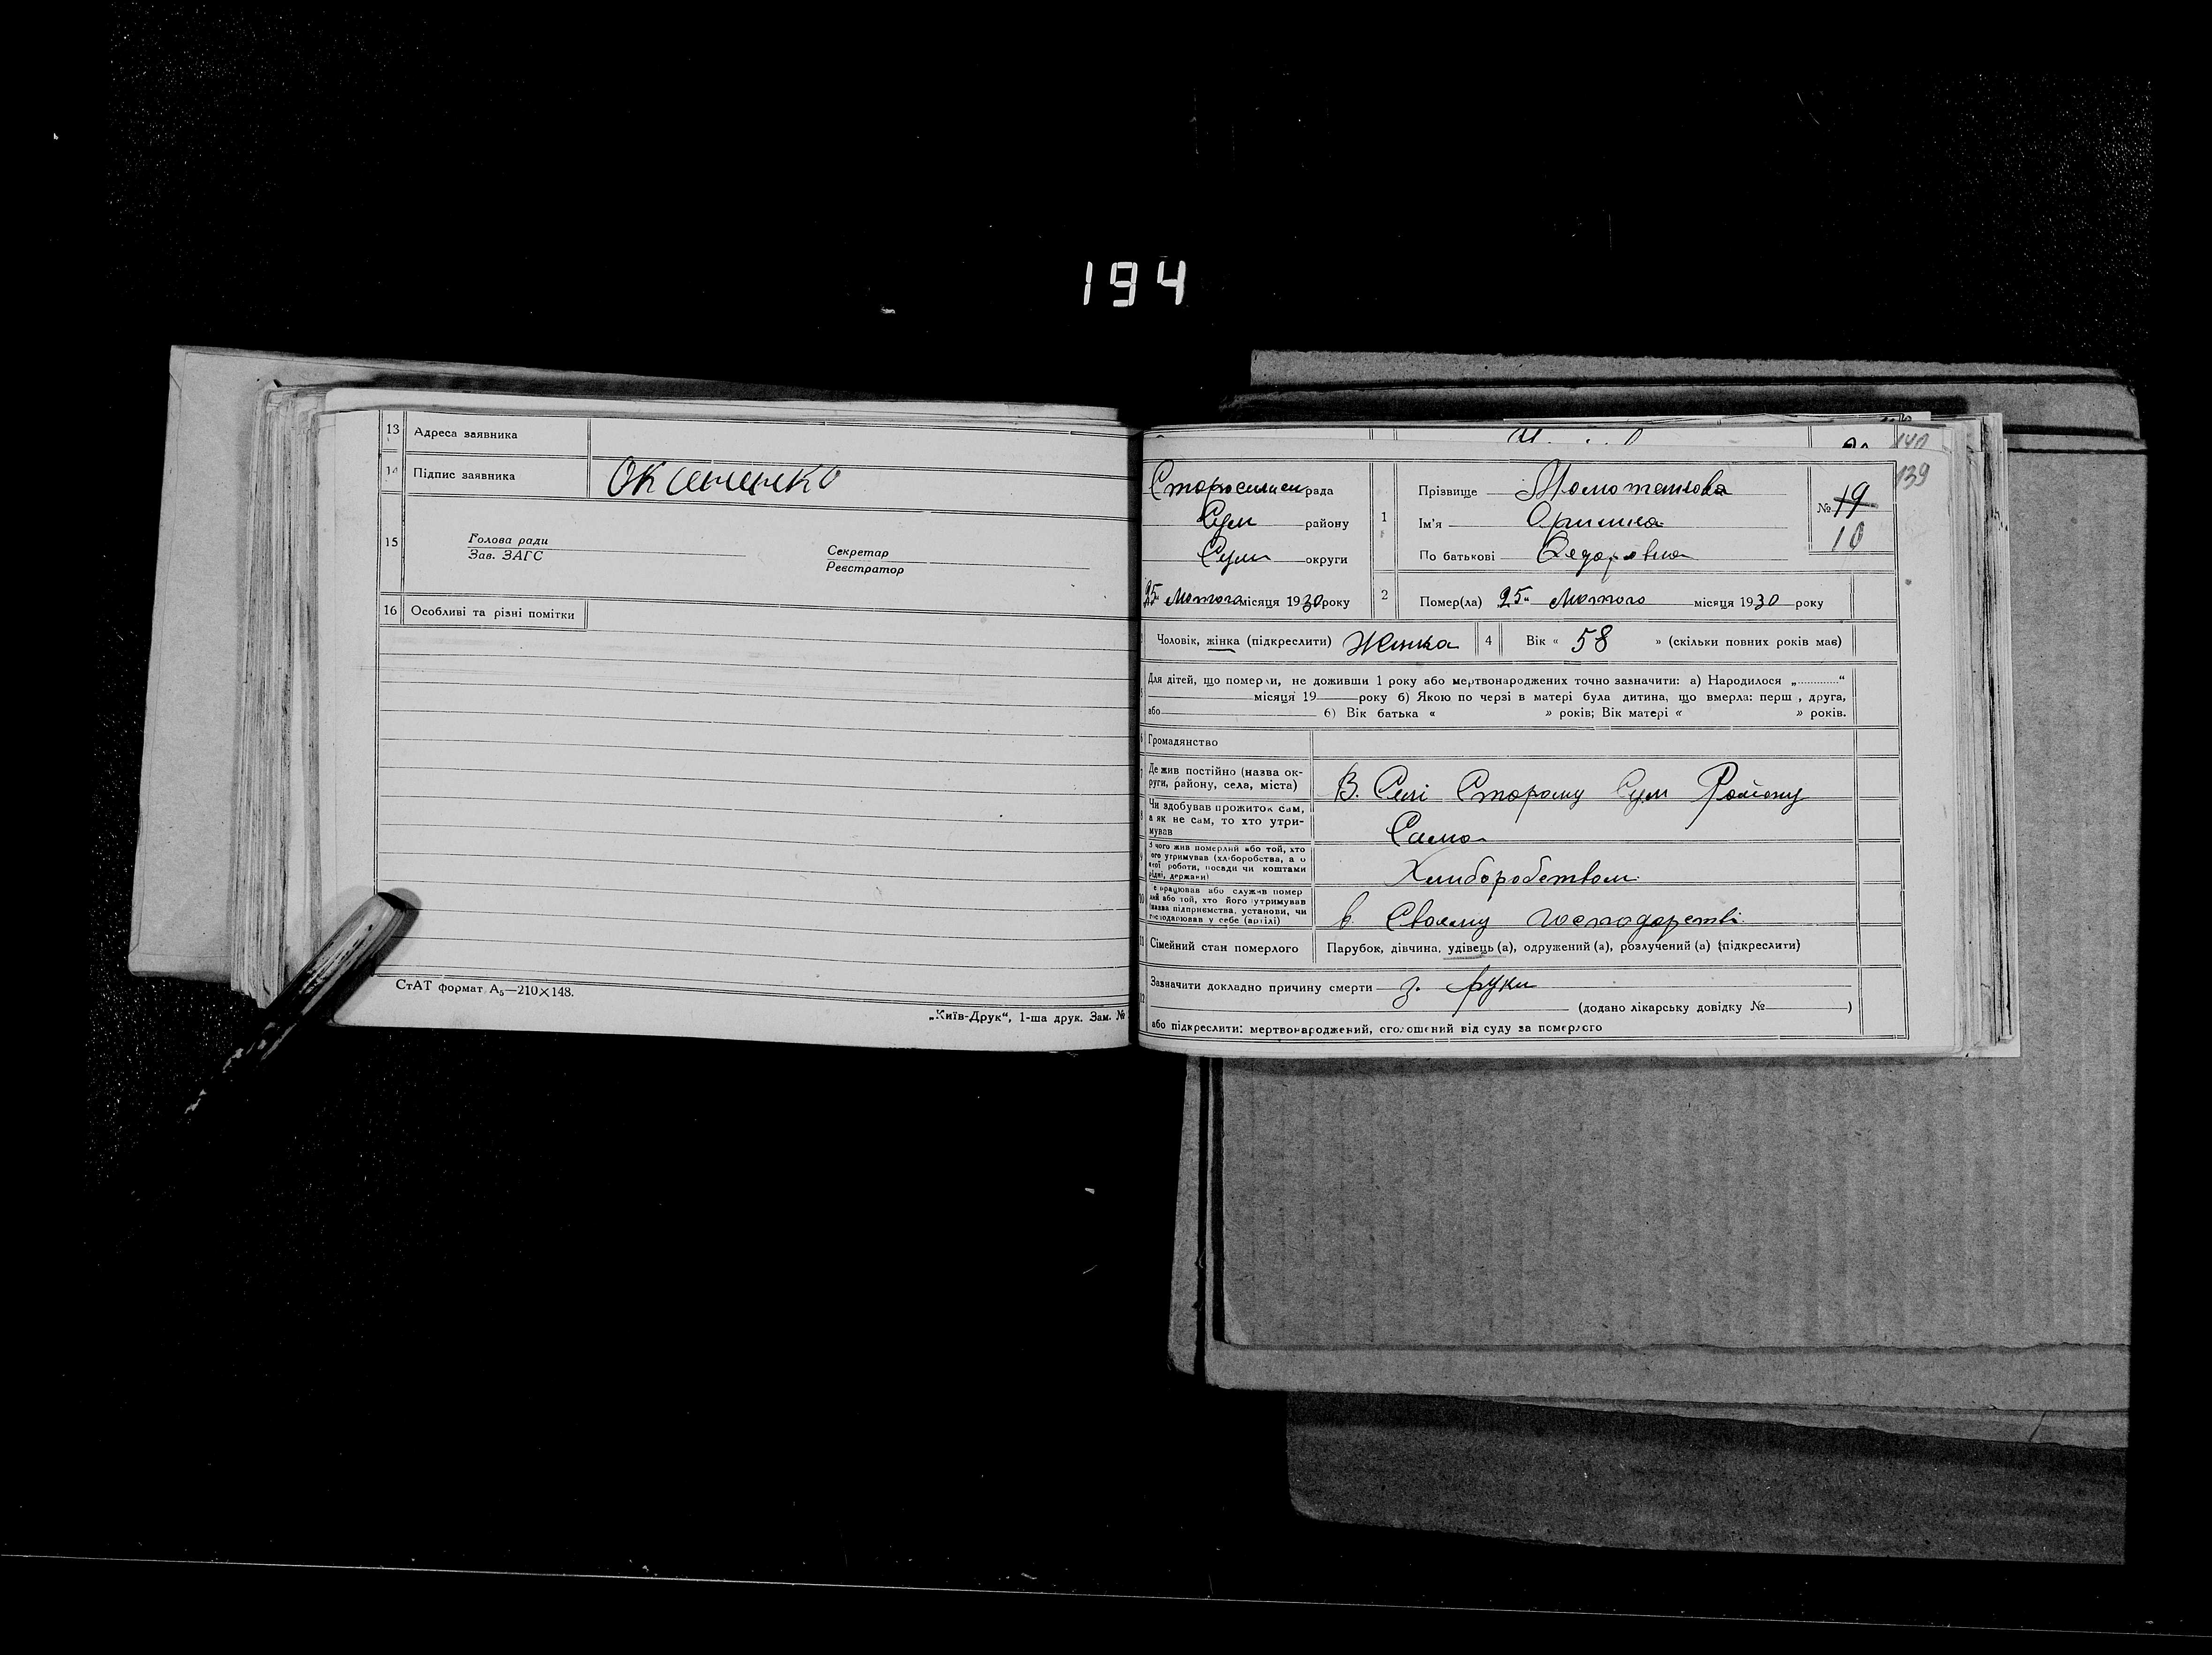 194
13 Адреса заявника
14 Підпис заявника Оксененко
15 Голова ради
Зав. ЗАГС
Секретар
Реєстратор
16 Особливі та різні помітки
СтАТ формат А₅—210×148.
„Київ-Друк“, 1-ша друк. Зам. №
140
139
рада
Сум району
Сум округи
25 Лютого місяця 1930 року
1 Прізвище
Ім'я Орина
По батькові Федоровна
№ 19
10
2 Помер(ла) 25 Лютого місяця 1930 року
Чоловік, жінка (підкреслити) Женка
4 Вік « 58 » (скільки повних років має)
Для дітей, що померли, не доживши 1 року або мертвонароджених точно зазначити: а) Народилося „............“
місяця 19 року б) Якою по черзі в матері була дитина, що вмерла: перш , друга,
або б) Вік батька « » років; Вік матері « » років.
Громадянство
Де жив постійно (назва ок-
руги, району, села, міста) В. Селі Старому Сум Району
Чи здобував прожиток сам,
а як не сам, то хто утри-
мував Сама
З чого жив померлий або той, хто
його утримував (хліборобства, а о
якої роботи, посади чи коштами
рідні, держави) Хлиборобством
Де працював або служив помер
лий або той, хто його утримував
(назва підприємства, установи, чи
господарював у себе (артілі) в Своєму господарстві
11 Сімейний стан померлого Парубок, дівчина, удівець (а), одружений (а), розлучений (а) (підкреслити)
12 Зазначити докладно причину смерти з. руки
(додано лікарську довідку № )
або підкреслити: мертвонароджений, оголошений від суду за померлого